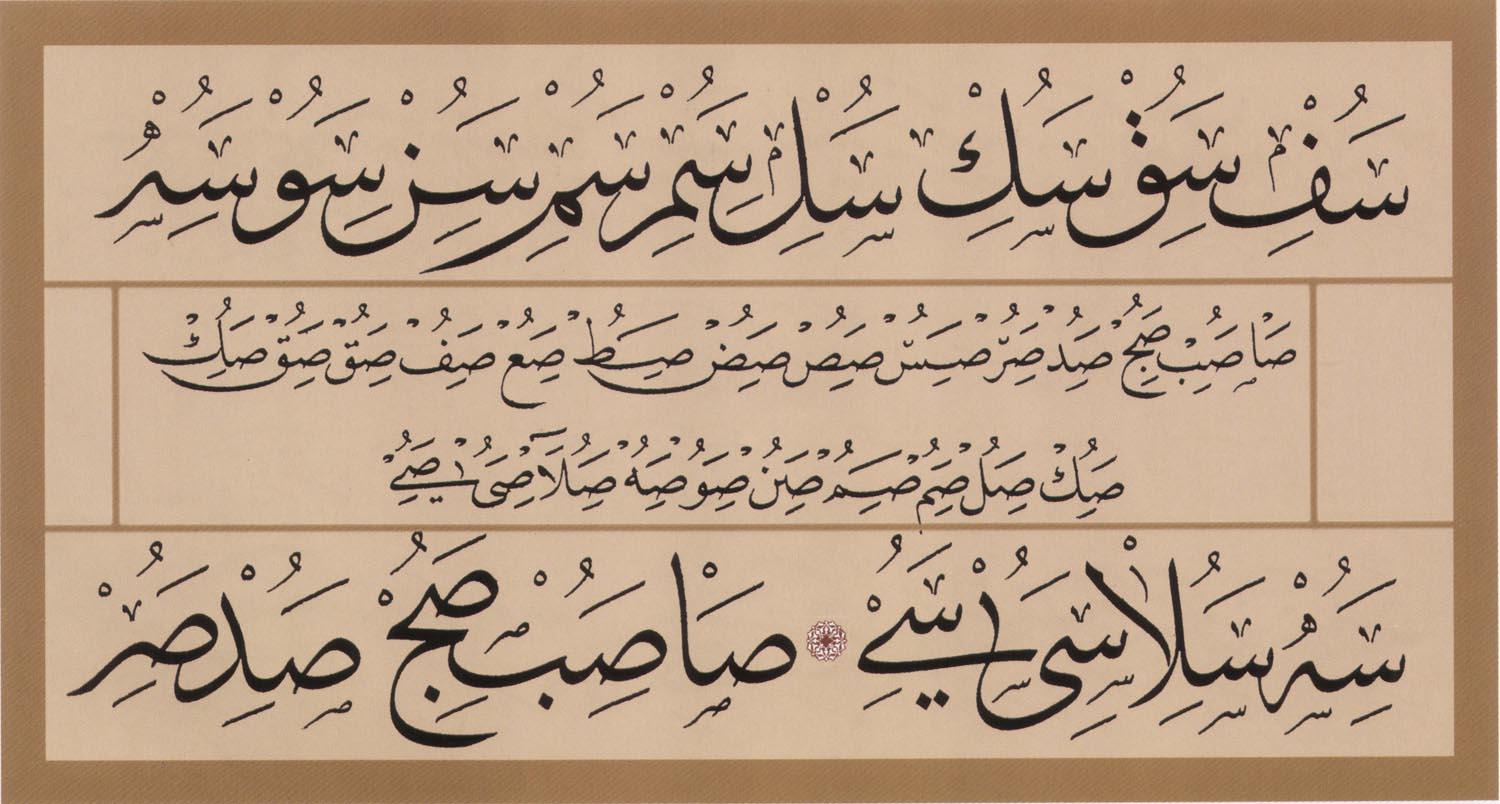 سف سق سك سل سم سم سن سو سه
صا صب صج صد صر صس صص صض صط صع صف صق صق صك
صك صل صم صم صن صو صه صلا صى صے
سه سلا سى سے صا صب صج صد صر